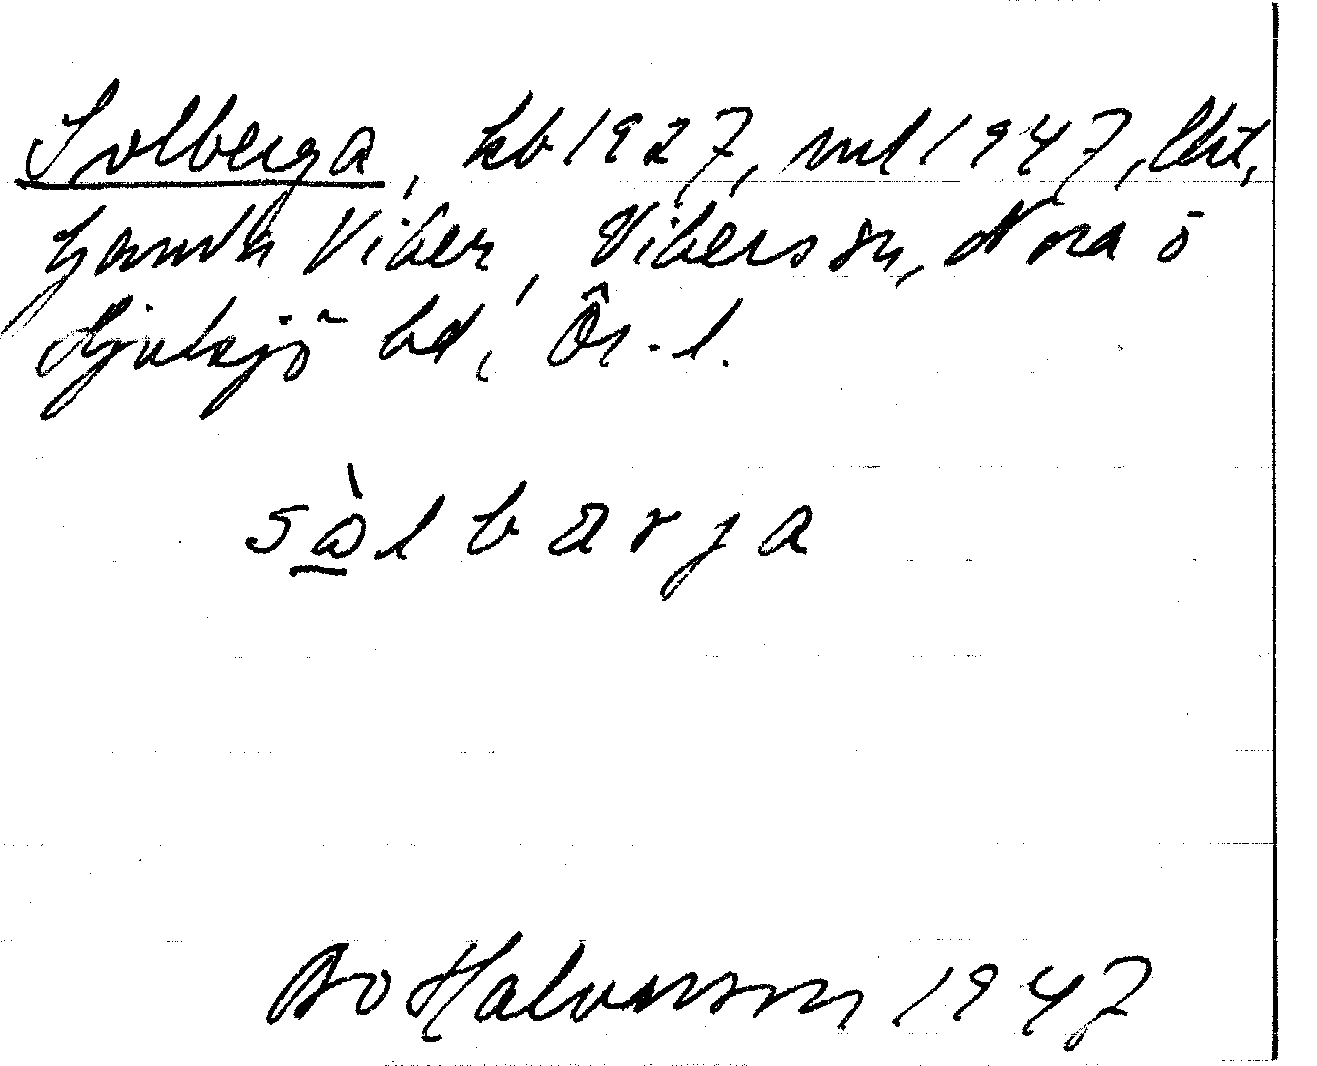 Solberga, kb 1927, ml 1947, lht,
Gamla Viker, Vikerssn, Nora o
Hjulsjö bd, Ör. l.
sò̱lbärja
Bo Halvarson 1947